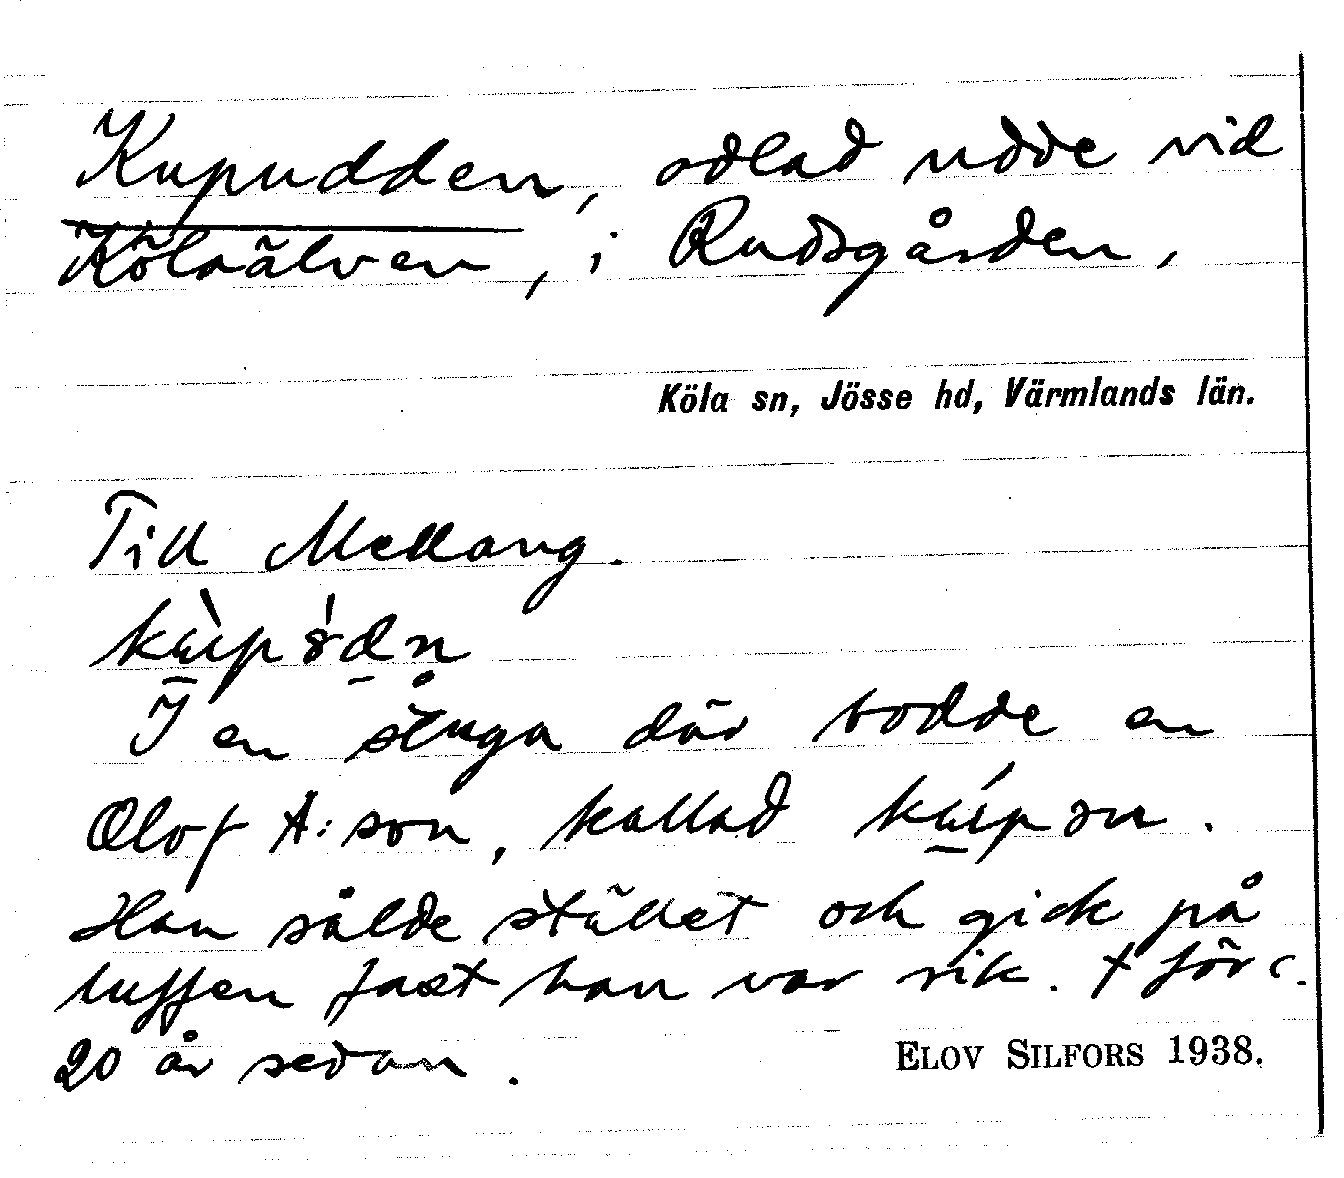 Kupudden, odlad udde vid
Kölaälven, i Rudsgården,
Köla sn, Jösse hd, Värmlands län.
Till Mellang.
I en stuga där bodde en
Olof A:son, kallad
Han sålde stället och gick på
luffen fast han var rik. † för c.
20 år sedan.
ELOV SILFORS 1938.